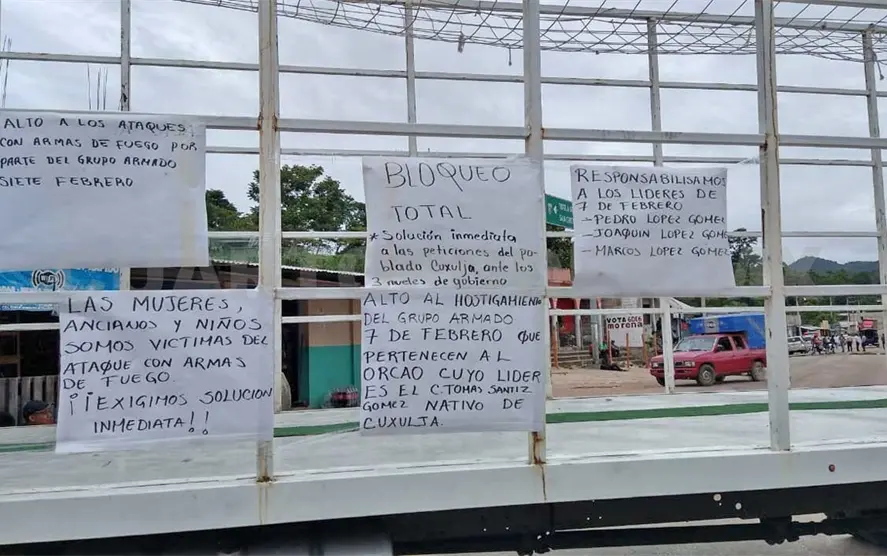 ALTO A LOS ATAQUES
CON ARMAS DE FUEGO POR
PARTE DEL GRUPO ARMADO
SIETE FEBRERO
BLOQUEO
TOTAL
* Solución inmediata
a las peticiones del po-
blada Cuxulja, ante los
3 niveles de gobierno
RESPONSABILISAMOS
A LOS LIDERES DE
7 DE FEBRERO
- PEDRO LOPEZ GOMEZ
- JOAQUIN LOPEZ GOME
- MARCOS LOPEZ GOMEZ
LAS MUJERES,
ANCIANOS Y NIÑOS
SOMOS VICTIMAS DEL
ATAQUE CON ARMAS
DE FUEGO.
¡¡EXIGIMOS SOLUCION
INMEDIATA!!
ALTO AL HOSTIGAMIENTO
DEL GRUPO ARMADO
7 DE FEBRERO QUE
PERTENECEN AL
ORCAO CUYO LIDER
ES EL C. TOMAS SANTIZ
GOMEZ NATIVO DE
CUXULJA.
VOTA
morena